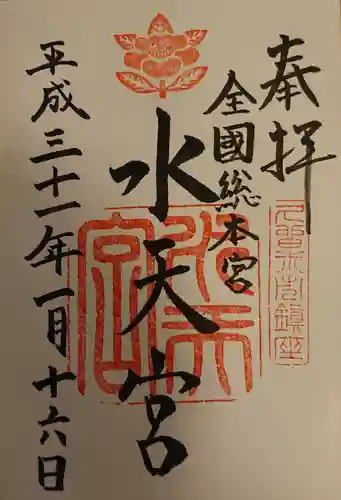 奉拝
全國総本宮
水天宮
平成三十一年一月十六日